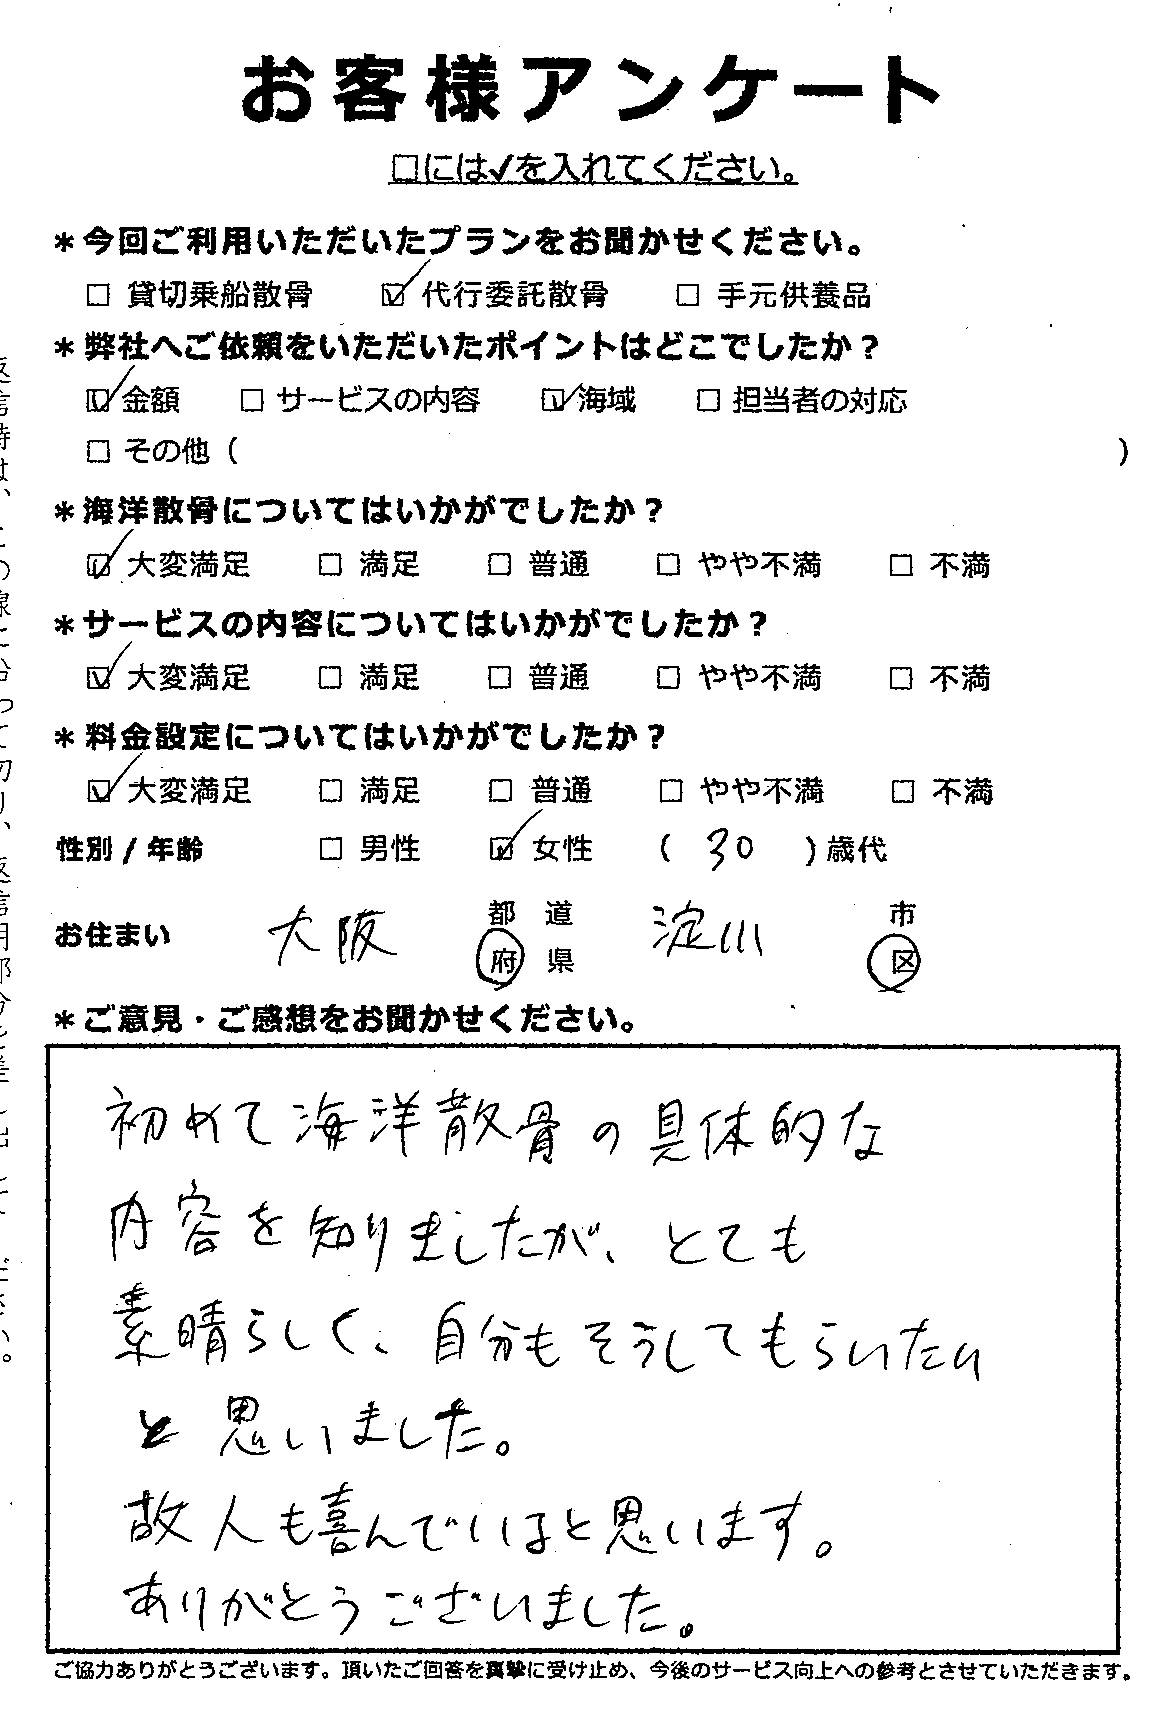 お客様アンケート
□には✓を入れてください。
*今回ご利用いただいたプランをお聞かせください。
□ 貸切乗船散骨 ☑ 代行委託散骨 □ 手元供養品
*弊社へご依頼をいただいたポイントはどこでしたか？
☑ 金額 □ サービスの内容 ☑ 海域 □ 担当者の対応
□ その他（ ）
*海洋散骨についてはいかがでしたか？
☑ 大変満足 □ 満足 □ 普通 □ やや不満 □ 不満
*サービスの内容についてはいかがでしたか？
☑ 大変満足 □ 満足 □ 普通 □ やや不満 □ 不満
*料金設定についてはいかがでしたか？
☑ 大変満足 □ 満足 □ 普通 □ やや不満 □ 不満
性別 / 年齢 □ 男性 ☑ 女性 （ 30 ）歳代
お住まい 大阪 都 道 府 県 淀川 市 区
*ご意見・ご感想をお聞かせください。
初めて海洋散骨の具体的な
内容を知りましたが、とても
素晴らしく、自分もそうしてもらいたい
と思いました。
故人も喜んでいると思います。
ありがとうございました。
ご協力ありがとうございます。頂いたご回答を真摯に受け止め、今後のサービス向上への参考とさせていただきます。